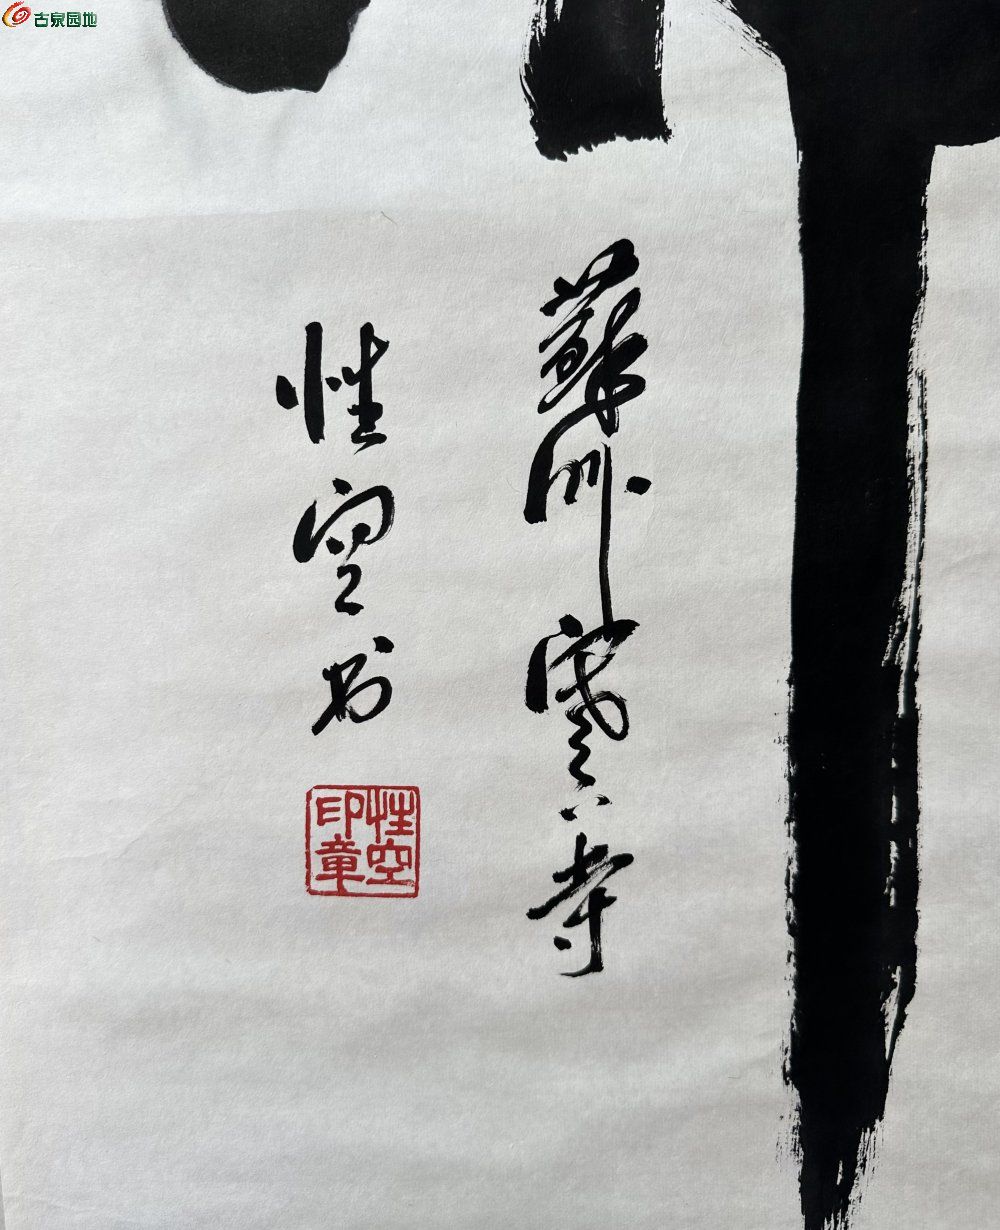 古泉园地
蘇州寒山寺
性空书
性空
印章